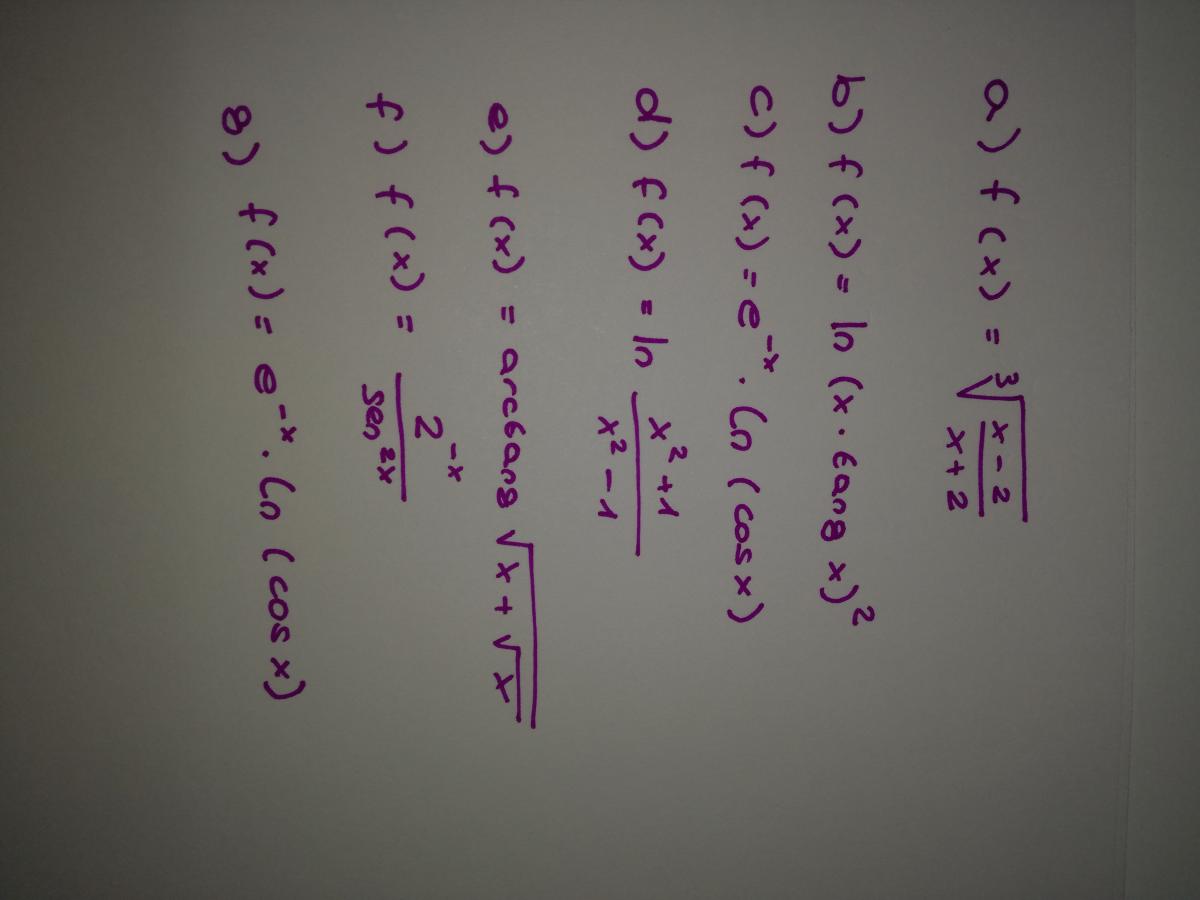 a) f(x) = ∛((x-2)/(x+2))
b) f(x) = ln (x · tang x)²
c) f(x) = e⁻ˣ · Ln (cos x)
d) f(x) = ln (x²+1)/(x²-1)
e) f(x) = arctang √(x+√x)
f) f(x) = 2⁻ˣ/sen²ˣ
g) f(x) = e⁻ˣ · Ln (cos x)